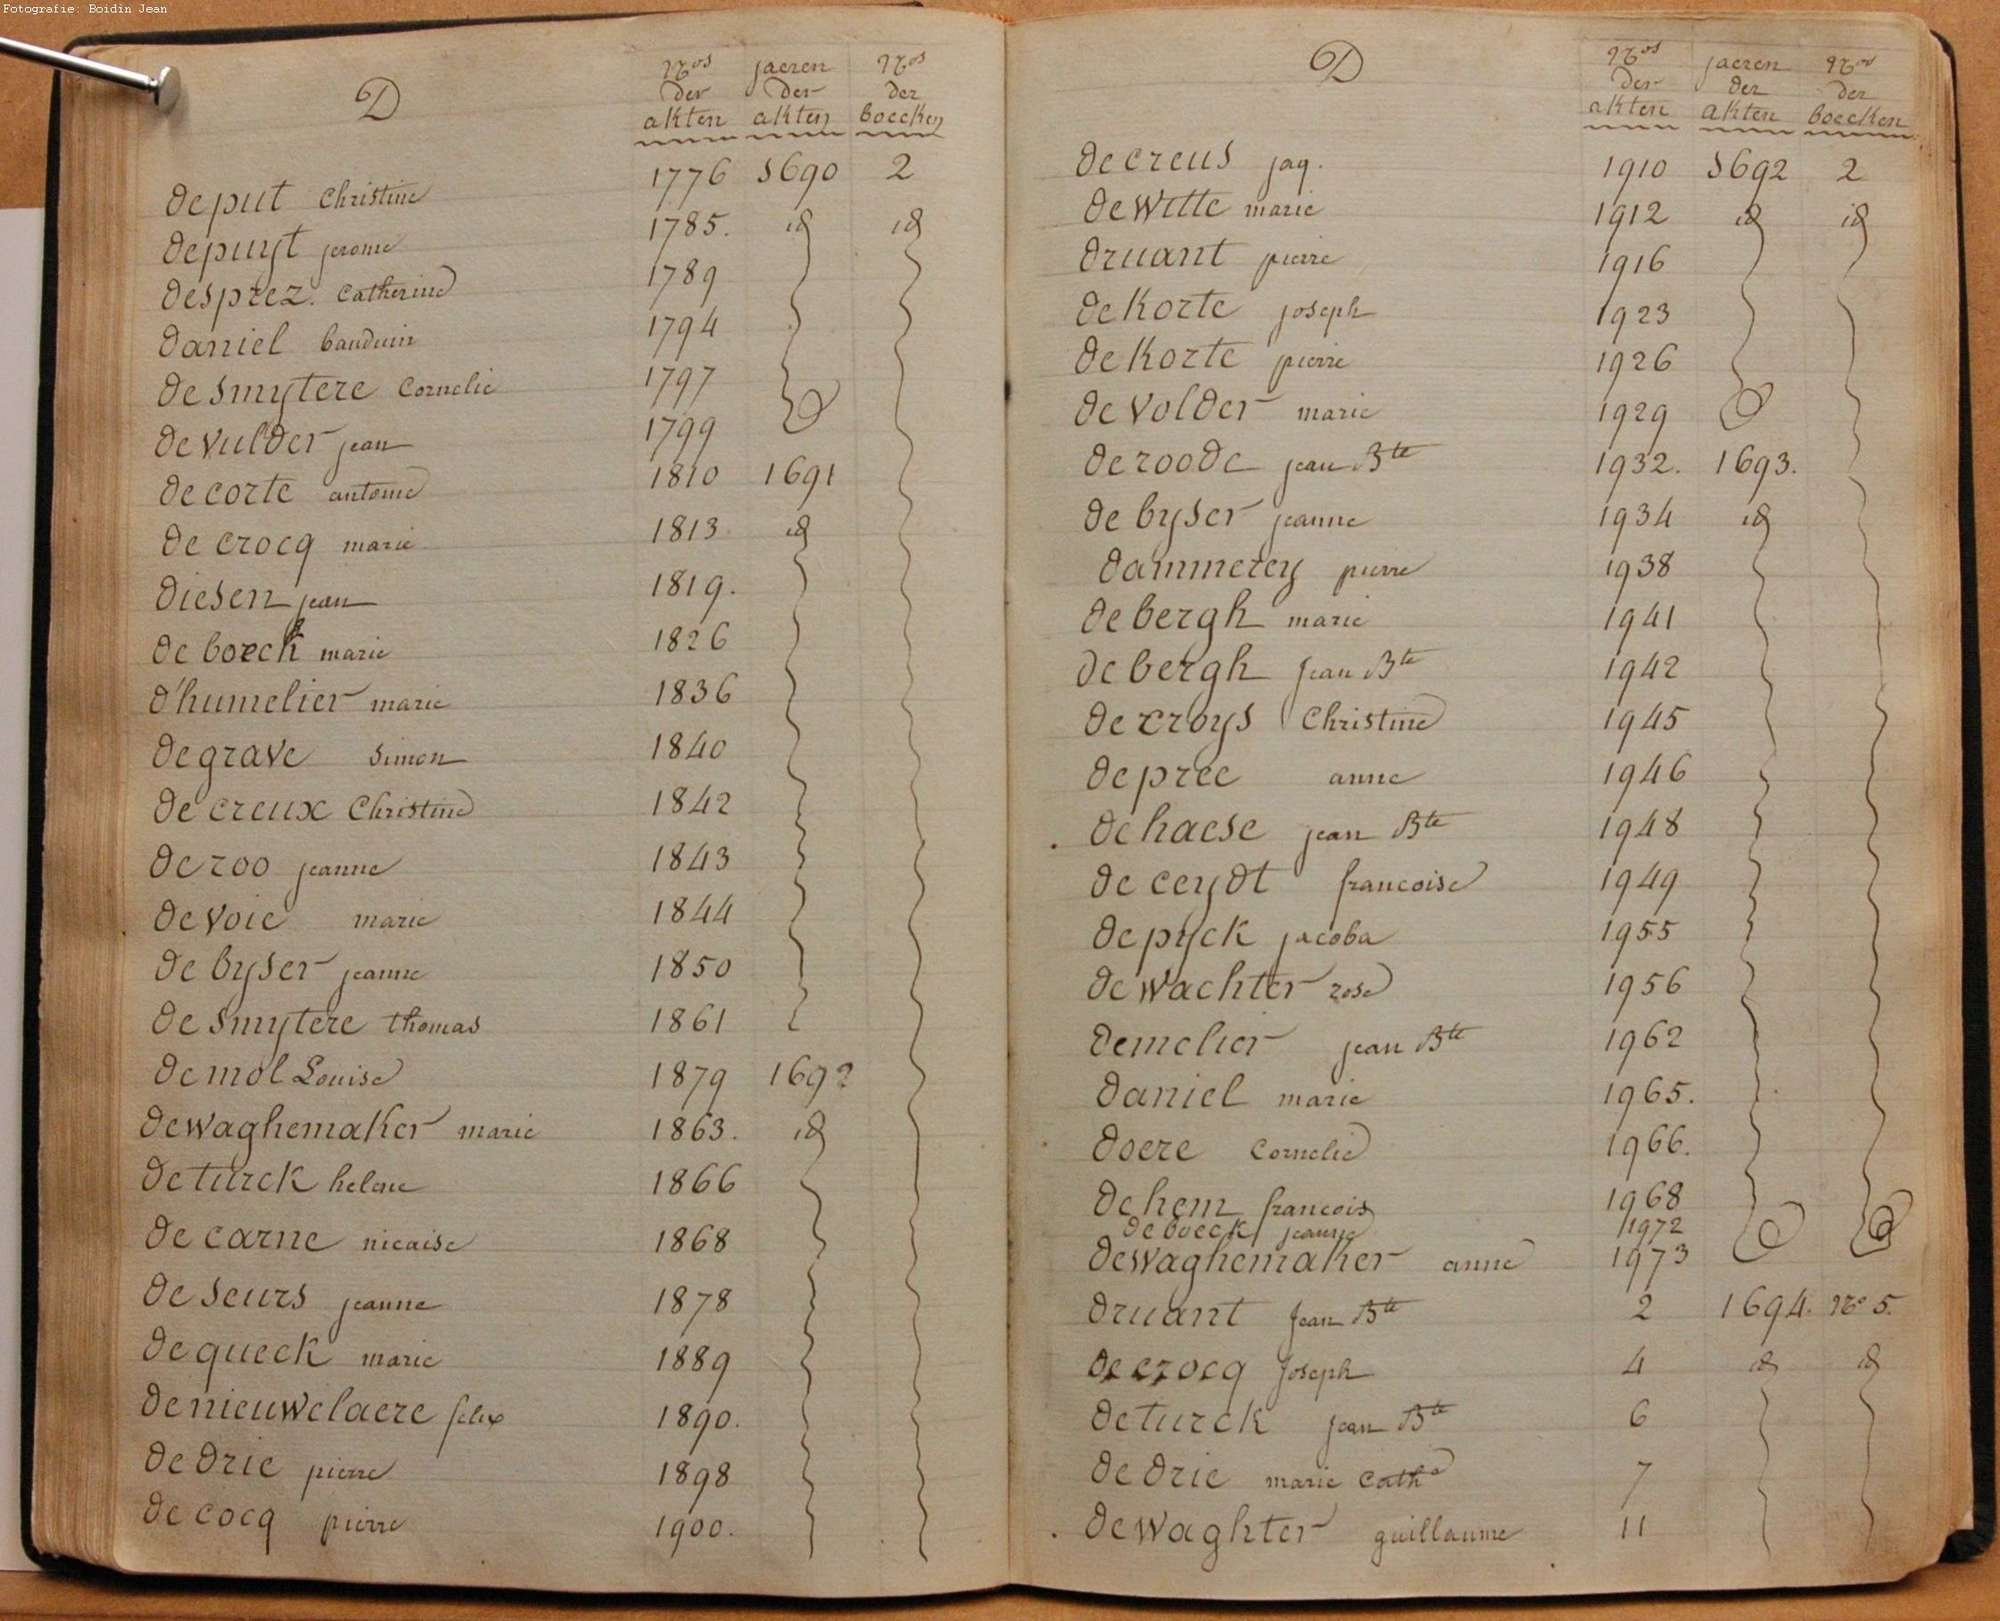 Fotografie: Boidin Jean
D
Nos jaeren Nos
der der der
akten akten boecken
deput Christine 1776 1690 2
depuyt jerome 1785. id id
desprez. Catherine 1789
daniel bauduin 1794
de smytere Cornelie 1797
de vulder jean 1799
de corte antoine 1810 1691
de crocq marie 1813 id
diesen jean 1819.
de boeck marie 1826
d'humelier marie 1836
de grave simon 1840
de creux Christine 1842
de roo jeanne 1843
de voie marie 1844
de byser jeanne 1850
de smytere thomas 1861
de mol Louise 1879 1692
dewaghemaker marie 1863. id
de turck helene 1866
de carne nicaise 1868
de seurs jeanne 1878
de queck marie 1889
de nieuwelaere felix 1890.
de drie pierre 1898
de cocq pierre 1900.
D
Nos jaeren Nos
der der der
akten akten boecken
de creus jaq. 1910 1692 2
de witte marie 1912 id id
druant pierre 1916
de korte joseph 1923
de korte pierre 1926
de volder marie 1929
de roode jean Bte 1932. 1693.
de byser jeanne 1934 id
dammerey pierre 1938
de bergh marie 1941
de bergh Jean Bte 1942
de croys Christine 1945
de pree anne 1946
. de haese jean Bte 1948
de ceydt francoise 1949
de pyck jacoba 1955
de wachter rose 1956
demelier jean Bte 1962
daniel marie 1965.
doere Cornelie 1966.
de hem francois 1968
de boeck jeanne 1972
dewaghemaker anne 1973
druant Jean Bte 2 1694. No 5.
de crocq Joseph 4 id id
de turck jean Bte 6
de drie marie Cathe 7
. de waghter guillaume 11